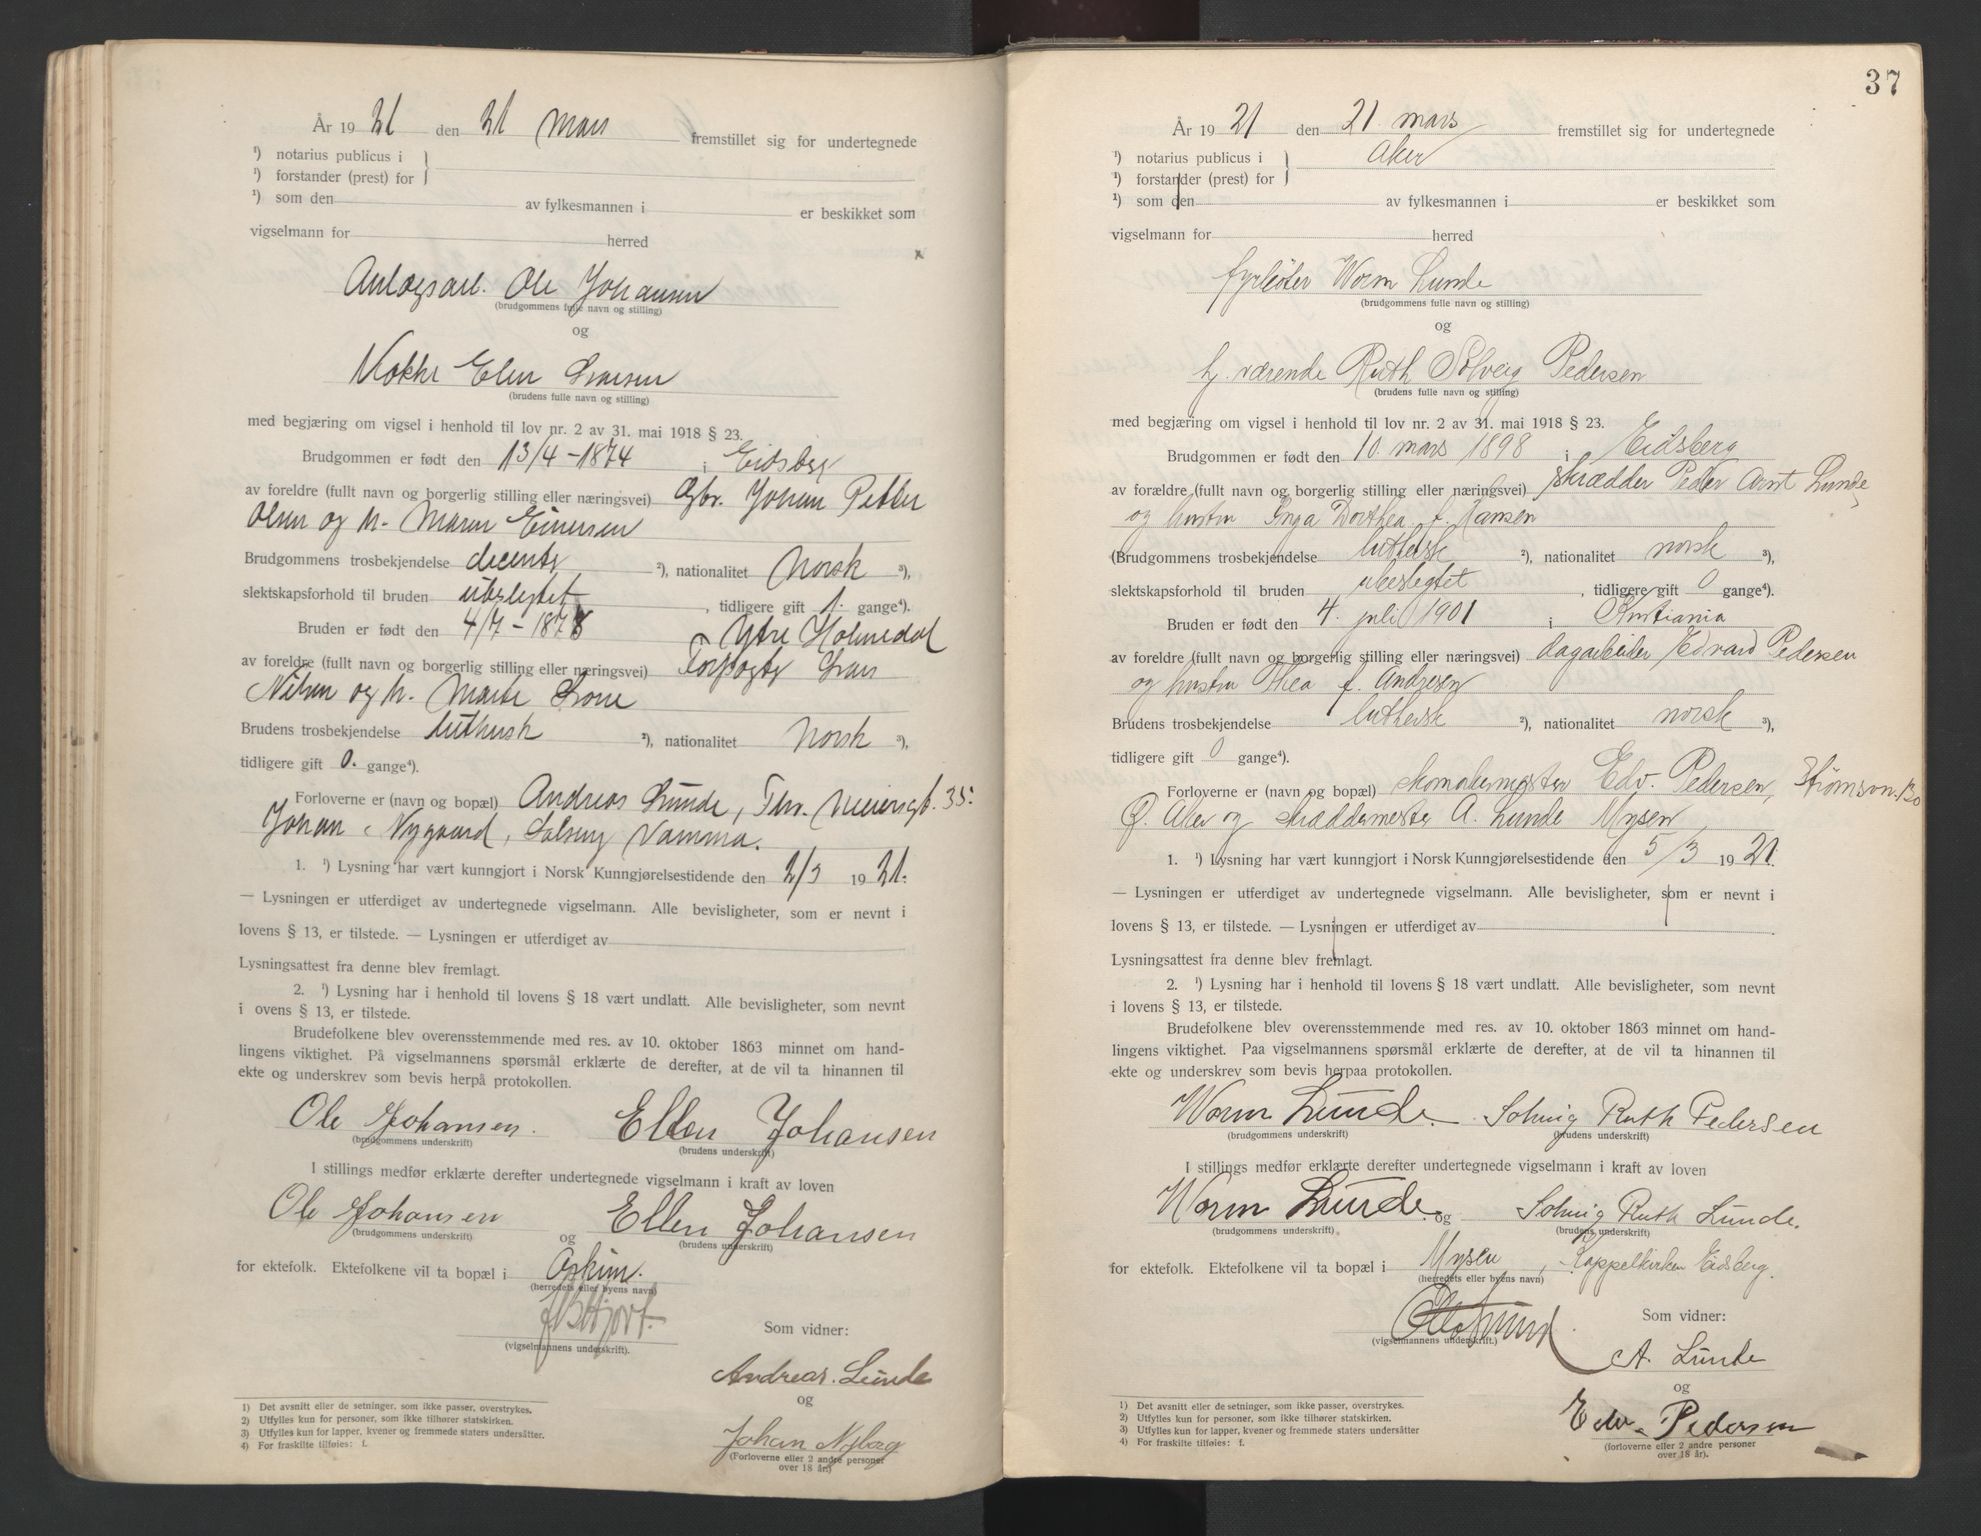 År 1921 den 21 mars fremstillet sig for undertegnede
¹) notarius publicus i
¹) forstander (prest) for
¹) som den av fylkesmannen i er beskikket som
vigselmann for herred
Anlægsarb. Ole Johansen
(brudgommens fulle navn og stilling)
og
Kokke Elen Larsen
(brudens fulle navn og stilling)
med begjæring om vigsel i henhold til lov nr. 2 av 31. mai 1918 § 23.
Brudgommen er født den 13/4 - 1874 i Eidsberg
av foreldre (fullt navn og borgerlig stilling eller næringsvei) Gbr. Johan Petter
Olsen og h. Maren Einersen
Brudgommens trosbekjendelse ²), nationalitet Norsk ³),
slektskapsforhold til bruden ubeslgtet, tidligere gift 1. gange⁴).
Bruden er født den 4/7 - 1878 i Ytre Holmedal
av foreldre (fullt navn og borgerlig stilling eller næringsvei) Forpagter Lars
Nilsen og h. Marte Lone
Brudens trosbekjendelse luthersk ²), nationalitet Norsk ³),
tidligere gift 0. gange⁴).
Forloverne er (navn og bopæl) Andreas Lunde, Thv. Meiersgt. 35.
Johan Nygaard, Solberg Vamma.
1. ¹) Lysning har vært kunngjort i Norsk Kunngjørelsestidende den 2/3 1921.
— Lysningen er utferdiget av undertegnede vigselmann. Alle bevisligheter, som er nevnt i
lovens § 13, er tilstede. — Lysningen er utferdiget av
Lysningsattest fra denne blev fremlagt.
2. ¹) Lysning har i henhold til lovens § 18 vært undlatt. Alle bevisligheter, som nevnt
i ovens § 13, er tilstede.
Brudefolkene blev overensstemmende med res. av 10. oktober 1863 minnet om hand-
lingens viktighet. På vigselmannens spørsmål erklærte de derefter, at de vil ta hinannen til
ekte og underskrev som bevis herpå protokollen.
Ole Johansen. Ellen Johansen
(brudgommens underskrift) (brudens underskrift)
I stillings medfør erklærte derefter undertegnede vigselmann i kraft av loven
Ole Johansen og Ellen Johansen
(brudgommens underskrift) (brudens underskrift)
for ektefolk. Ektefolkene vil ta bopæl i Askim.
(herredets eller byens navn)
(vigselmannens underskrift).
Som vidner:
Andreas. Lunde
og
Johan Nyborg
(Forloverne eller 2 andre personer
over 18 år.)
1) Det avsnitt eller de setninger, som ikke passer, overstrykes.
2) Utfylles kun for personer, som ikke tilhører statskirken.
3) Utfylles kun for lapper, kvener og fremmede staters undersåtter.
4) For fraskilte tilføies: f.
37
År 1921 den 21. mars fremstillet sig for undertegnede
¹) notarius publicus i Aker
¹) forstander (prest) for
¹) som den av fylkesmannen i er beskikket som
vigselmann for herred
fyrbøter Worm Lunde
(brudgommens fulle navn og stilling)
og
hj. værende Ruth Solveig Pedersen
(brudens fulle navn og stilling)
med begjæring om vigsel i henhold til lov nr. 2 av 31. mai 1918 § 23.
Brudgommen er født den 10. mars 1898 i Eidsberg
av forældre (fullt navn og borgerlig stilling eller næringsvei) skrædder Peder Arnt Lunde
og hustru Inga Dorthea f. Hansen
(Brudgommens trosbekjendelse luthersk ²), nationalitet norsk ³),
slektskapsforhold til bruden ubeslegtet, tidligere gift 0 gange⁴).
Bruden er født den 4. juli 1901 i Kristiania
av foreldre (fullt navn og borgerlig stilling eller næringsvei) dagarbeider Edvard Pedersen
og hustru Thea f. Andresen
Brudens trosbekjendelse luthersk ²), nationalitet norsk ³),
tidligere gift 0 gange⁴).
Forloverne er (navn og bopæl) skomakermester Edv. Pedersen,
Ø. Aker og skræddermester A. Lunde Mysen
1. ¹) Lysning har vært kunngjort i Norsk Kunngjørelsestidende den 5/3 1921.
— Lysningen er utferdiget av undertegnede vigselmann. Alle bevisligheter, som er nevnt i
lovens § 13, er tilstede. — Lysningen er utferdiget av
Lysningsattest fra denne blev fremlagt.
2. ¹) Lysning har i henhold til lovens § 18 vært undlatt. Alle bevisligheter, som nevnt
i lovens § 13, er tilstede.
Brudefolkene blev overensstemmende med res. av 10. oktober 1863 minnet om hand-
lingens viktighet. Paa vigselmannens spørsmål erklærte de derefter, at de vil ta hinannen til
ekte og underskrev som bevis herpaa protokollen.
Worm Lunde. Solveig Ruth Pedersen
(brudgommens underskrift) (brudens underskrift)
I stillings medfør erklærte derefter undertegnede vigselmann i kraft av loven
Worm Lunde. og Solveig Ruth Lunde.
(brudgommens underskrift). (brudens underskrift)
for ektefolk. Ektefolkene vil ta bopæl i Mysen, Kappelkirken Eidsberg.
(herredets eller byens navn)
(vigselmannens underskrift.)
Som vidner:
A. Lunde
og
Edv. Pedersen
(forloverne eller 2 andre personer
over 18 år).
1) Det avsnitt eller de setninger, som ikke passer, overstrykes.
2) Utfylles kun for personer, som ikke tilhører statskirken.
3) Utfylles kun for lapper, kvener og fremmede staters undersåtter
4) For fraskilte tilføies: f.